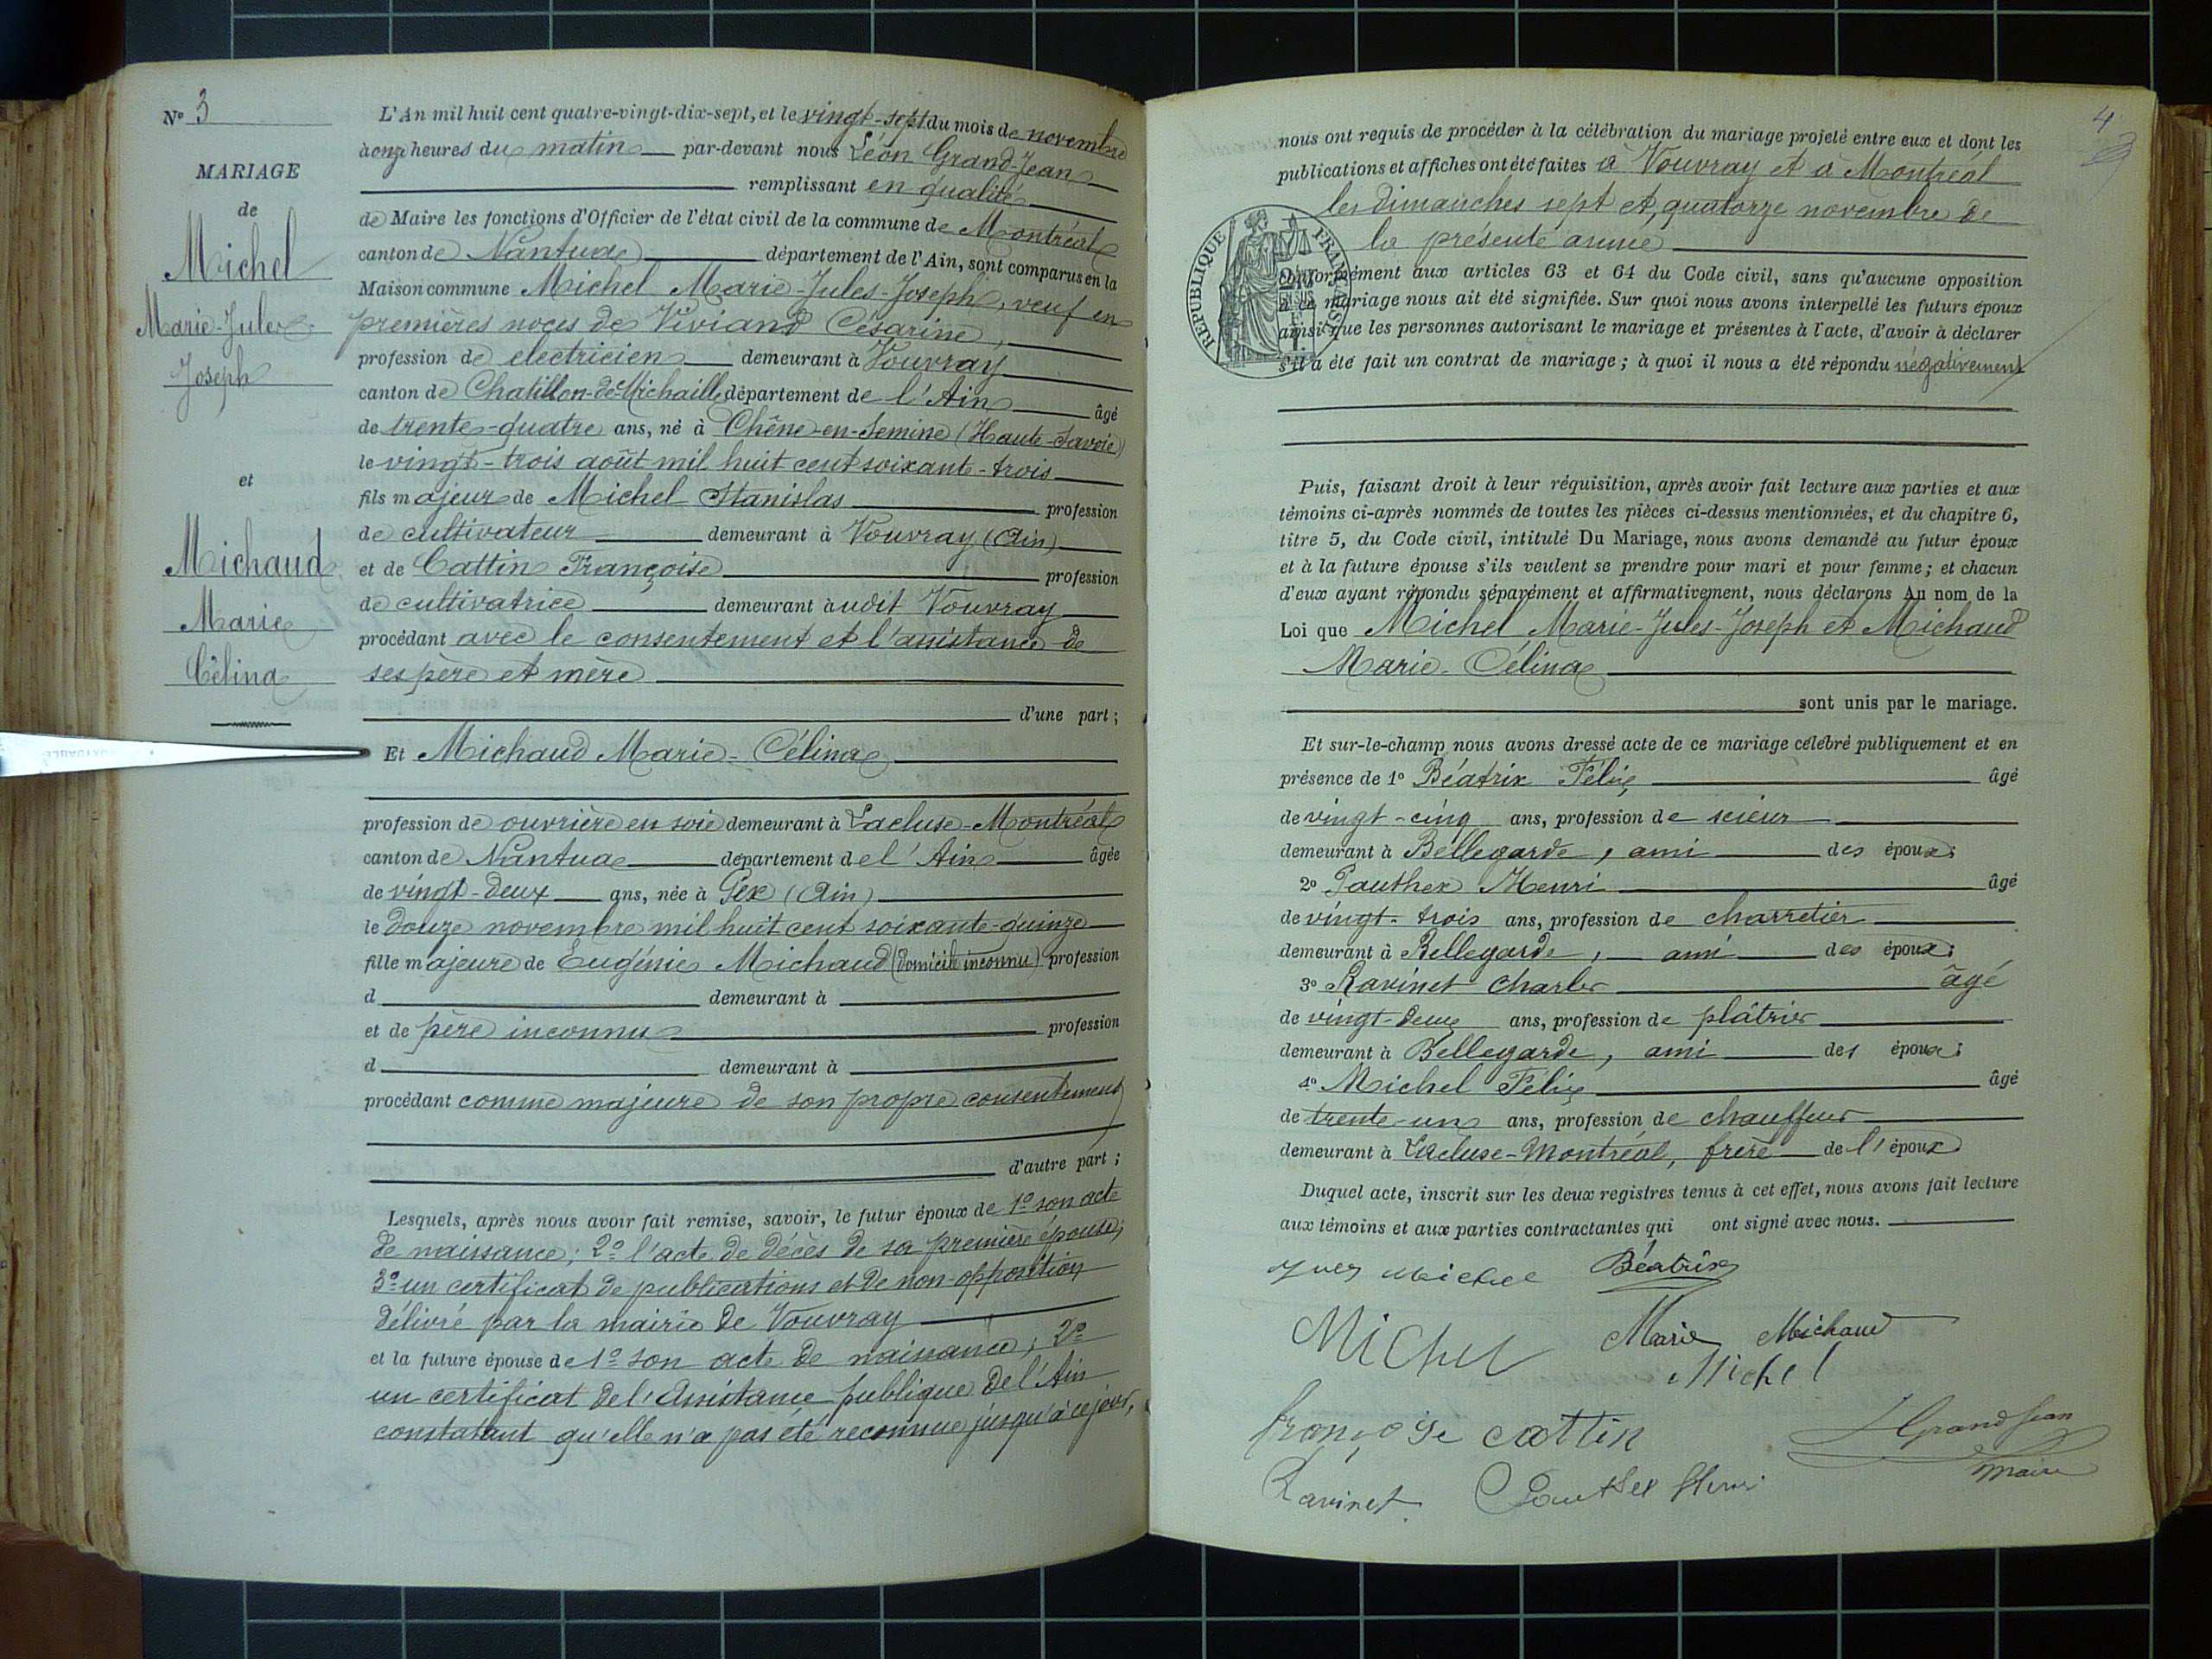 N° 3
MARIAGE
de
Michel
Marie-Jules-
Joseph
et
Michaud
Marie
Célina
L'An mil huit cent quatre-vingt-dix-sept, et le vingt-sept du mois de novembre
à onze heures du matin par-devant nous Léon Grand-Jean
remplissant en qualité
de Maire les fonctions d'Officier de l'état civil de la commune de Montréal
canton de Nantua département de l'Ain, sont comparus en la
Maison commune Michel Marie-Jules-Joseph, veuf en
premières noces de Viviand Césarine,
profession de electricien demeurant à Vouvray
canton de Chatillon-de-Michaille département de l'Ain âgé
de trente-quatre ans, né à Chêne-en-Semine (Haute-Savoie)
le vingt-trois août mil huit cent soixante-trois
fils majeur de Michel Stanislas profession
de cultivateur demeurant à Vouvray (Ain)
et de Cattin Françoise profession
de cultivatrice demeurant audit Vouvray
procédant avec le consentement et l'assistance de
ses père et mère
d'une part ;
Et Michaud Marie-Célina
profession de ouvrière en soie demeurant à Lacluse-Montréal
canton de Nantua département de l'Ain âgée
de vingt-deux ans, née à Gex (Ain)
le douze novembre mil huit cent soixante-quinze
fille majeure de Eugénie Michaud (domicile inconnu) profession
d demeurant à
et de père inconnu profession
d demeurant à
procédant comme majeure de son propre consentement
d'autre part ;
Lesquels, après nous avoir fait remise, savoir, le futur époux de 1° son acte
de naissance ; 2° l'acte de décès de sa première épouse ;
3° un certificat de publications et de non-opposition
délivré par la mairie de Vouvray
et la future épouse de 1° son acte de naissance ; 2°
un certificat de l'Assistance publique de l'Ain
constatant qu'elle n'a pas été reconnue jusqu'à ce jour,
4
nous ont requis de procéder à la célébration du mariage projeté entre eux et dont les
publications et affiches ont été faites à Vouvray et à Montréal
les dimanches sept et quatorze novembre de
la présente année
REPUBLIQUE FRANÇAISE
conformément aux articles 63 et 64 du Code civil, sans qu'aucune opposition
à ce mariage nous ait été signifiée. Sur quoi nous avons interpellé les futurs époux
ainsi que les personnes autorisant le mariage et présentes à l'acte, d'avoir à déclarer
s'il a été fait un contrat de mariage ; à quoi il nous a été répondu négativement
Puis, faisant droit à leur réquisition, après avoir fait lecture aux parties et aux
témoins ci-après nommés de toutes les pièces ci-dessus mentionnées, et du chapitre 6,
titre 5, du Code civil, intitulé Du Mariage, nous avons demandé au futur époux
et à la future épouse s'ils veulent se prendre pour mari et pour femme ; et chacun
d'eux ayant répondu séparément et affirmativement, nous déclarons Au nom de la
Loi que Michel Marie-Jules-Joseph et Michaud
Marie-Célina
sont unis par le mariage.
Et sur-le-champ nous avons dressé acte de ce mariage célébré publiquement et en
présence de 1° Béatrix Félix âgé
de vingt-cinq ans, profession de scieur
demeurant à Bellegarde, ami des époux ;
2° Pauthex Henri âgé
de vingt-trois ans, profession de charretier
demeurant à Bellegarde, ami des époux ;
3° Ravinet Charles âgé
de vingt-deux ans, profession de plâtrier
demeurant à Bellegarde, ami des époux ;
4° Michel Félix âgé
de trente-un ans, profession de chauffeur
demeurant à Lacluse-Montréal, frère de l'époux
Duquel acte, inscrit sur les deux registres tenus à cet effet, nous avons fait lecture
aux témoins et aux parties contractantes qui ont signé avec nous.
Michel Béatrix
Michel Marie Michaud
Michel
françoise cattin LGrandJean
Maire
Ravinet Pauthex Henri